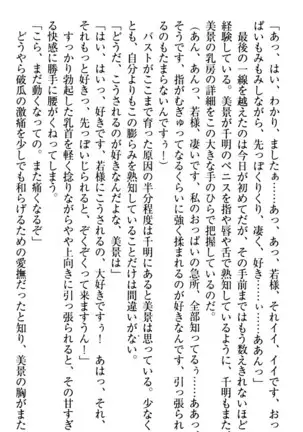 「あっ、はい、わかり、ましたぁ……あっ、あっ、若様、それイイ、イイです、おっ
ぱいもみもみしながら、先っぽくりくり、凄く、好き……ぃ……ああんっ」
　最後の一線を越えたのは今日が初めてだが、その手前まではもう数えきれないほど
経験している。美景が千明のペニスを指や唇や舌で熟知しているように、千明もまた、
美景の乳房の詳細をこの大きな手のひらで把握しているのだ。
（あん、あんっ、若様、凄いです、私のおっぱいの急所、全部知ってるぅ……ああっ、
そうです、指がむぎゅってなるくらいに強く揉まれるのが好きなんです、引っ張られ
るのもたまらないんですぅ！）
　バストがここまで育った原因の半分程度は千明にあると美景は思っている。少なく
とも、自分よりもこの膨らみを熟知していることだけは間違いがない。
「どうだ、こうされるのが好きなんだよな、美景は」
「はい、はいっ、好きです、若様にこうされるの、大好きですっ！　あはっ、それ、
それもっと好きっ、先っぽいじられると、ぞくぞくって来ますうん！」
　すっかり勃起した乳首を軽く捻りながらやや上向きに引っ張られると、その甘すぎ
る快感に勝手に腰がくねってしまう。
「こら、まだ動くなっての。また痛くなるぞ」
　どうやら破瓜の激痛を少しでも和らげるための愛撫だったと知り、美景の胸がまた